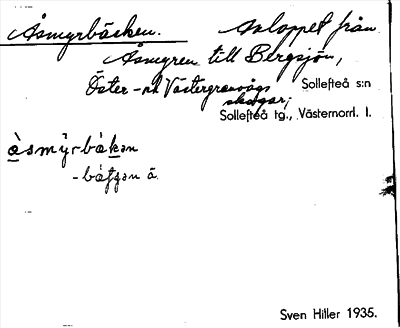 Åsmyrbäcken. Avloppet från
Åsmyren till Bergsjön,
Öster- och Västergransjös
skogar; Sollefteå s:n
Sollefteå tg., Västernorrl. l.
-bätʃən ä.
Sven Hiller 1935.